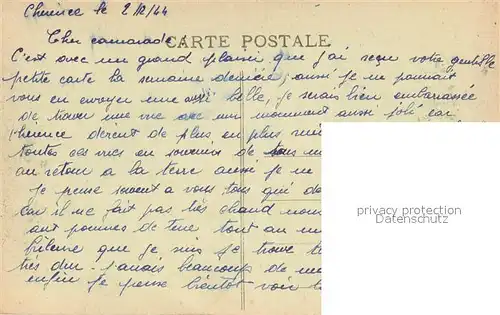 Chérence le 2/12/44
Cher camarade,
CARTE POSTALE
C'est avec un grand plaisir que j'ai reçu votre gentille
petite carte la semaine dernière; aussi je ne pouvait
vous en envoyer une aussi belle, je serais bien embarrassée
de trouver une vue avec un monument aussi joli car
Chérence devient de plus en plus
toutes ces vues en souvenir de tous
au retour a la terre aussi je ne
Je pense souvent a vous tous qui
car il ne fait pas très chaud
aux pommes de terre tout au
frileuse que je suis je trouve
très dur. J'aurais beaucoup de
enfin je pense bientôt voir
privacy protection
Datenschutz